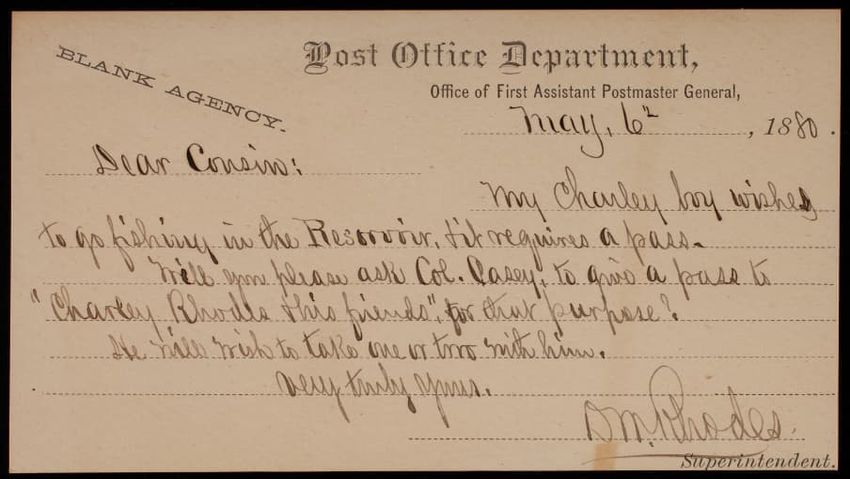 BLANK AGENCY.
Post Office Department,
Office of First Assistant Postmaster General,
May, 6th, 1880.
Dear Cousin:
My Charley boy wishes
to go fishing in the Reservoir, & it requires a pass.
Will you please ask Col. Casey, to give a pass to
"Charley Rhodes & his friends", for that purpose?
He will wish to take one or two with him.
Very truly yours.
D. M. Rhodes.
Superintendent.